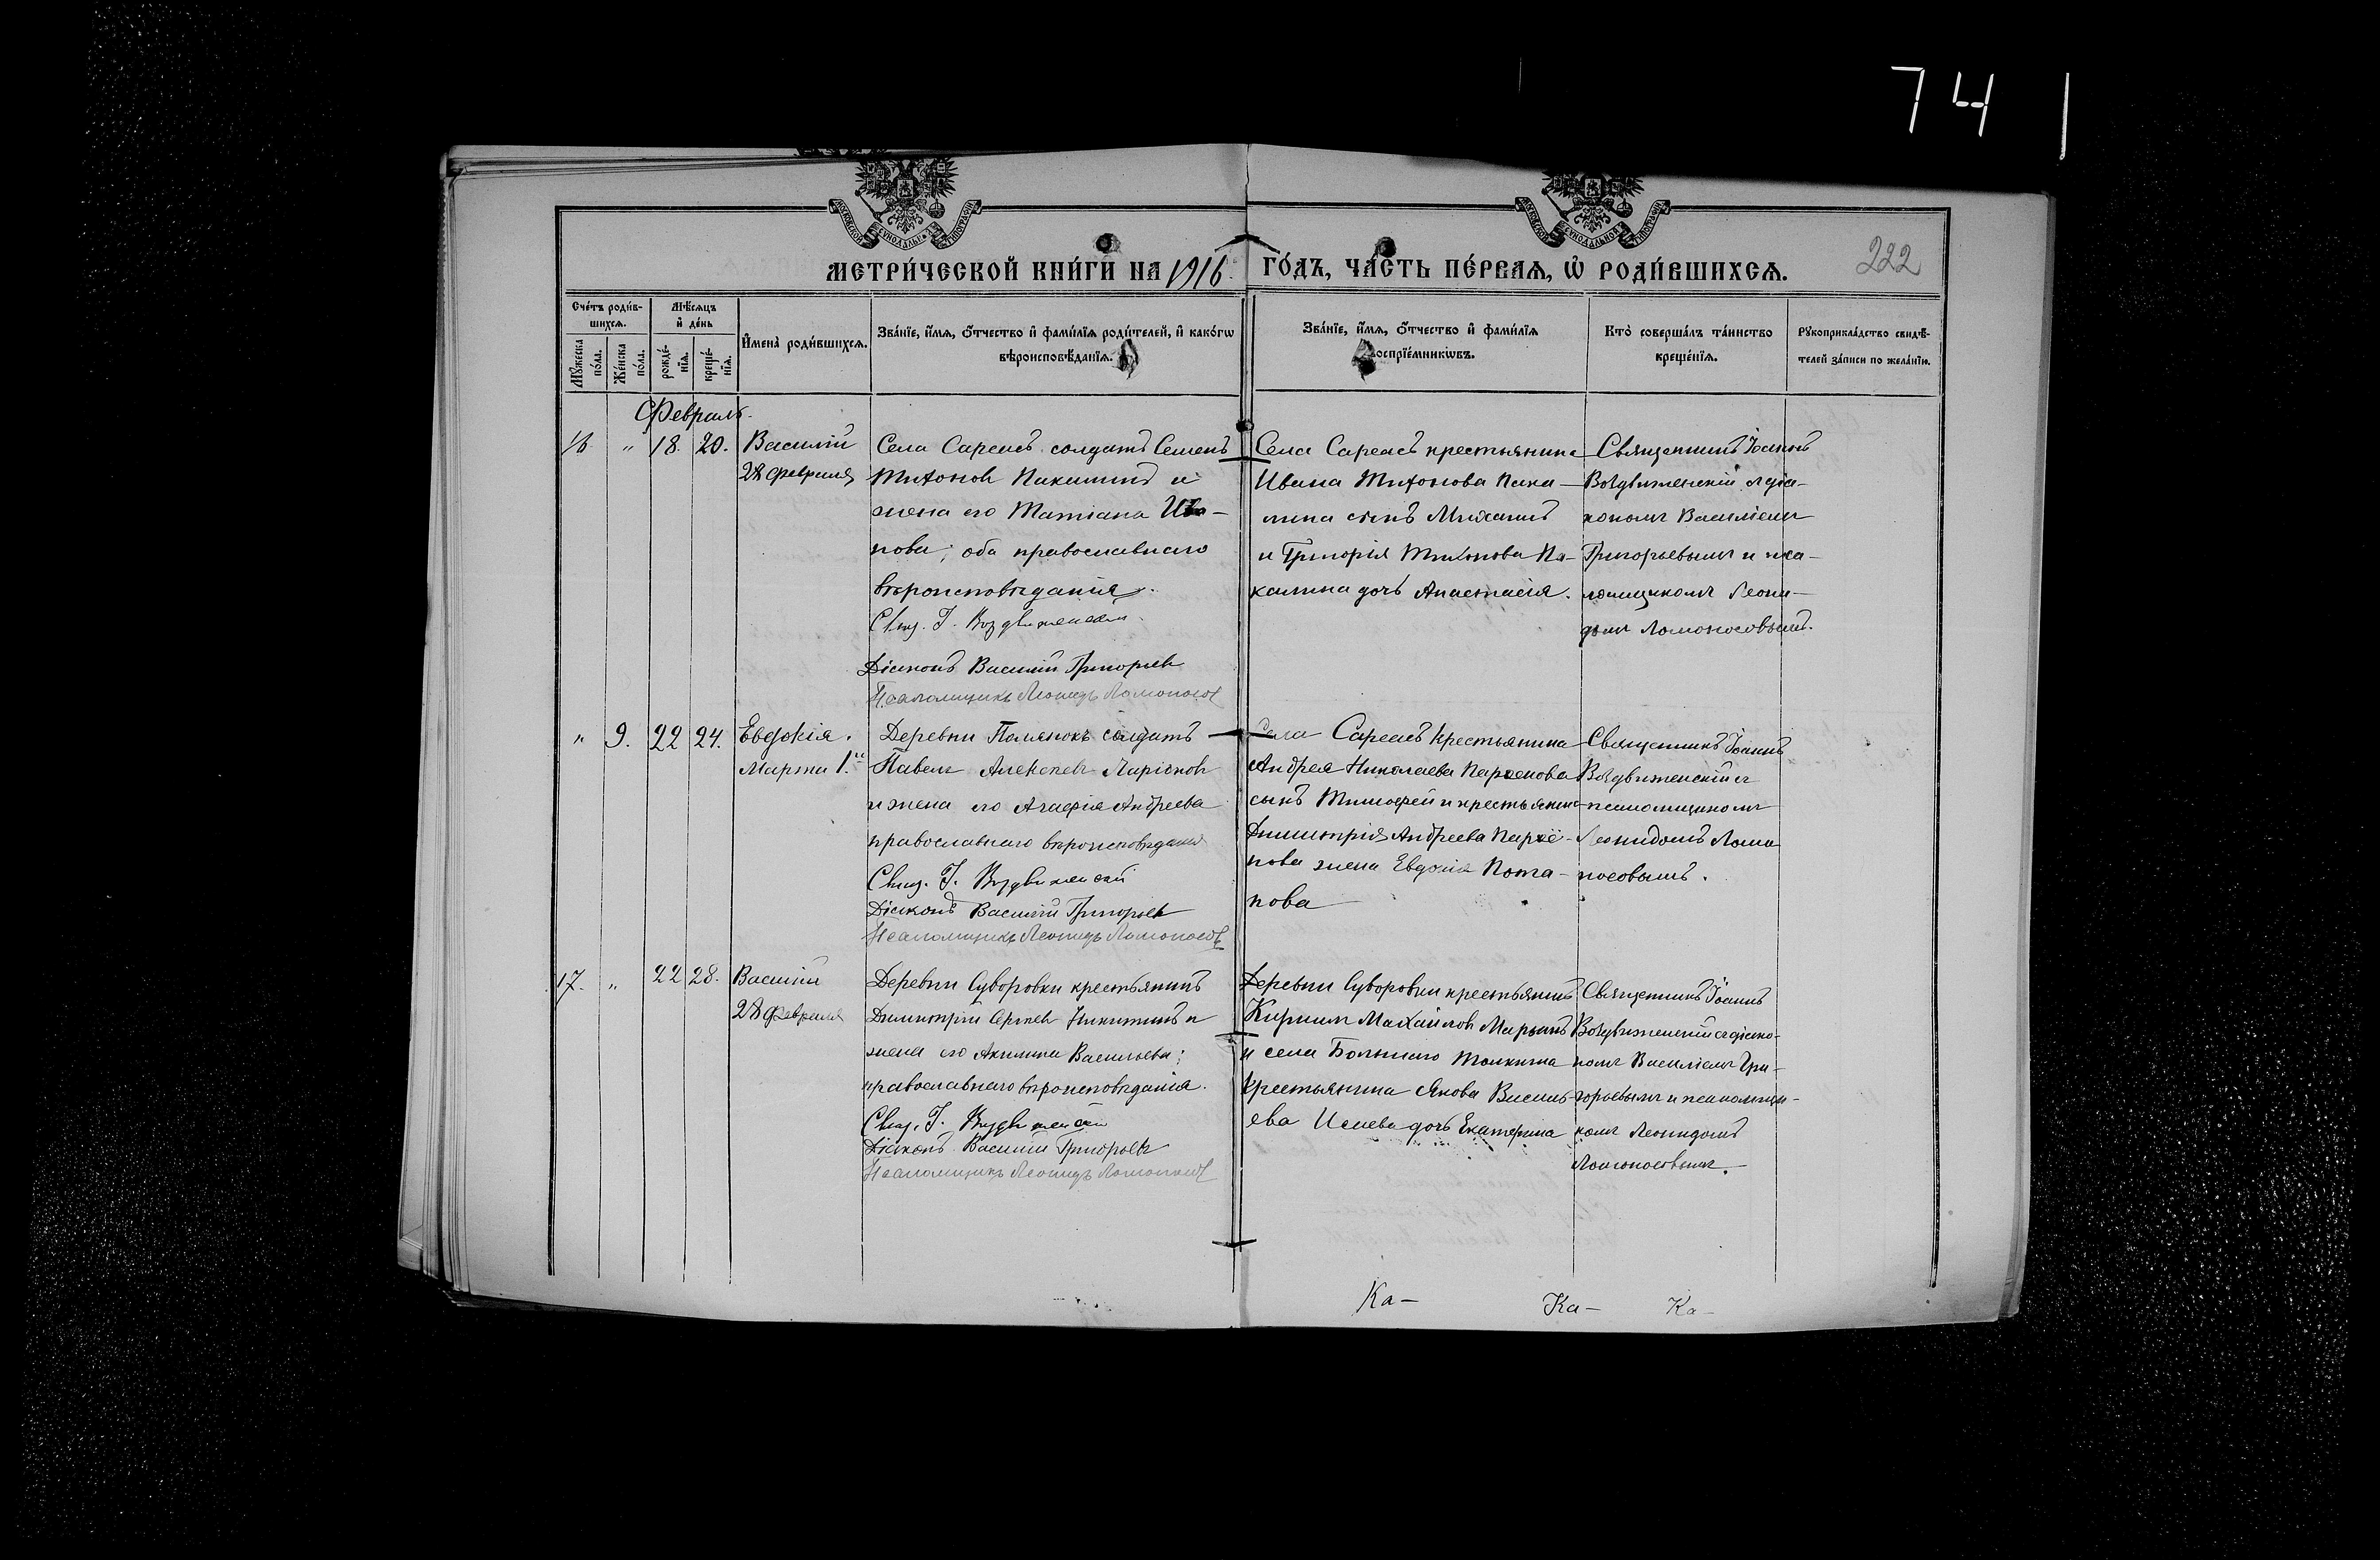 74
222
МЕТРИЧЕСКОЙ КНИГИ НА 1916 ГОДЪ, ЧАСТЬ ПЕРВАЯ, Ѡ РОДИВШИХСЯ.
Счетъ родив-
шихся.
Мѣсяцъ
и день
Мужеска
пола.
Женска
пола.
рожде-
нїя.
креще-
нїя.
Имена родившихся.
Званїе, имя, отчество и фамилїя родителей, и какогѡ
вѣроисповѣданїя.
Званїе, имя, отчество и фамилїя
воспрїемникѡвъ.
Кто совершалъ таинство
крещенїя.
Рукоприкладство свидѣ-
телей записи по желанїю.
Февраль.
16 " 18. 20.
Василій
28 февраля
Села Сареевъ солдатъ Семенъ
Тихоновъ Пакилинъ и
жена его Татіана Ива-
нова; оба православнаго
вѣроисповѣданія.
Свящ. І. Воздвиженскій.
Діаконъ Василій Григорьевъ
Псаломщикъ Леонидъ Ломоносовъ
Села Сареевъ крестьянина
Ивана Тихонова Пака-
лина сынъ Михаилъ
и Григорія Тихонова Па-
калина дочь Анастасія.
Священникъ Іоаннъ
Воздвиженскій съ діа-
кономъ Василіемъ
Григорьевымъ и пса-
ломщикомъ Леони-
домъ Ломоносовымъ.
" 9. 22 24.
Евдокія.
Марта 1.
Деревни Полянокъ солдатъ
Павелъ Алексѣевъ Ларіоновъ
и жена его Агаѳія Андреева
православнаго вѣроисповѣданія
Свящ. І. Воздвиженскій
Діаконъ Василій Григорьевъ
Псаломщикъ Леонидъ Ломоносовъ
Села Сареевъ крестьянина
Андрея Николаева Парѳенова
сынъ Тимоѳей и крестьянина
Димитрія Андреева Парѳе-
нова жена Евдокія Пота-
пова
Священникъ Іоаннъ
Воздвиженскій съ
псаломщикомъ
Леонидомъ Ломо
носовымъ.
17. " 22 28.
Василій
28 февраля
Деревни Суворовки крестьянинъ
Димитрій Сергѣевъ Никитинъ и
жена его Акилина Васильева;
православнаго вѣроисповѣданія.
Свящ. І. Воздвиженскій
Діаконъ Василій Григорьевъ
Псаломщикъ Леонидъ Ломоносовъ
Деревни Суворовки крестьянинъ
Кириллъ Михайловъ Марьинъ
и села Большаго Толкина
крестьянина Якова Василь-
ева Исаева дочь Екатерина
Священникъ Іоаннъ
Воздвиженскій съ діако-
номъ Василіемъ Гри-
горьевымъ и псаломщи-
комъ Леонидомъ
Ломоносовымъ.
Ка- Ка- Ка-